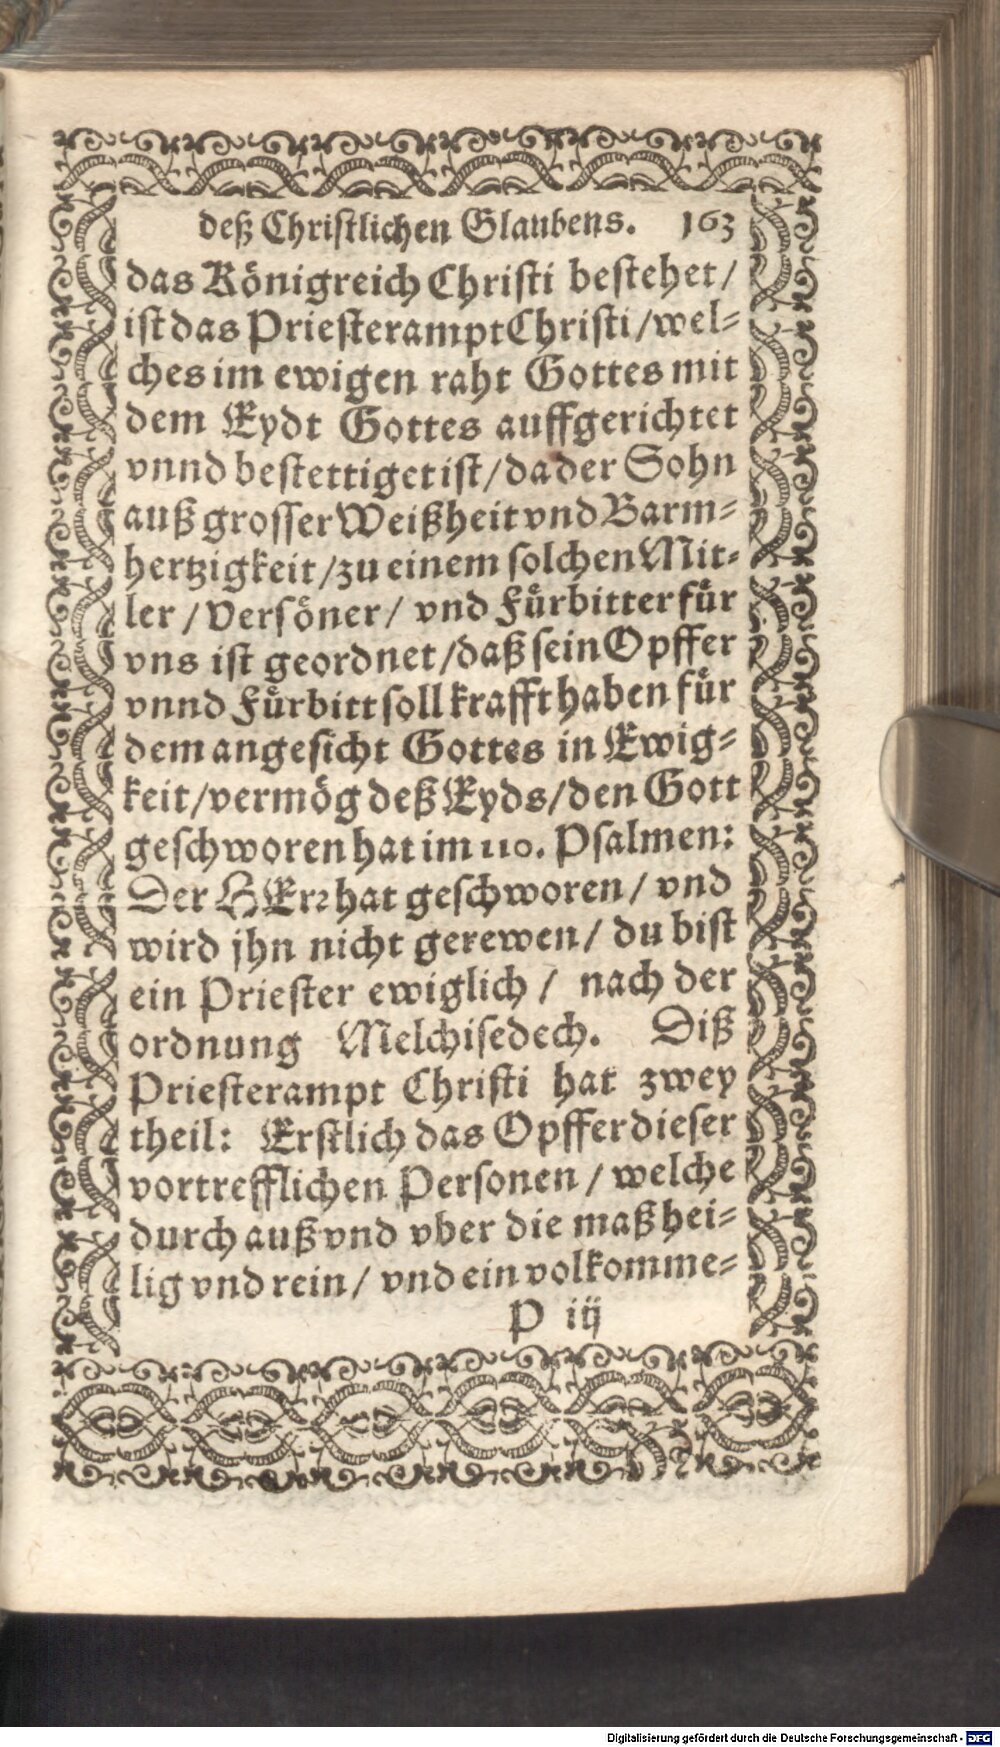 deß Christlichen Glaubens. 163
das Königreich Christi bestehet/
ist das Priesterampt Christi/wel-
ches im ewigen raht Gottes mit
dem Eydt Gottes auffgerichtet
vnnd bestettiget ist/da der Sohn
auß grosser Weißheit vnd Barm-
hertzigkeit/zu einem solchen Mit-
ler/Versöner/ vnd Fürbitter für
vns ist geordnet/daß sein Opffer
vnnd Fürbitt soll krafft haben für
dem angesicht Gottes in Ewig-
keit/vermög deß Eyds/den Gott
geschworen hat im 110. Psalmen:
Der HErr hat geschworen/ vnd
wird jhn nicht gerewen/ du bist
ein Priester ewiglich/ nach der
ordnung Melchisedech. Diß
Priesterampt Christi hat zwey
theil: Erstlich das Opffer dieser
vortrefflichen Personen/ welche
durch auß vnd vber die maß hei-
lig vnd rein/ vnd ein volkomme-
P iij
Digitalisierung gefördert durch die Deutsche Forschungsgemeinschaft - DFG